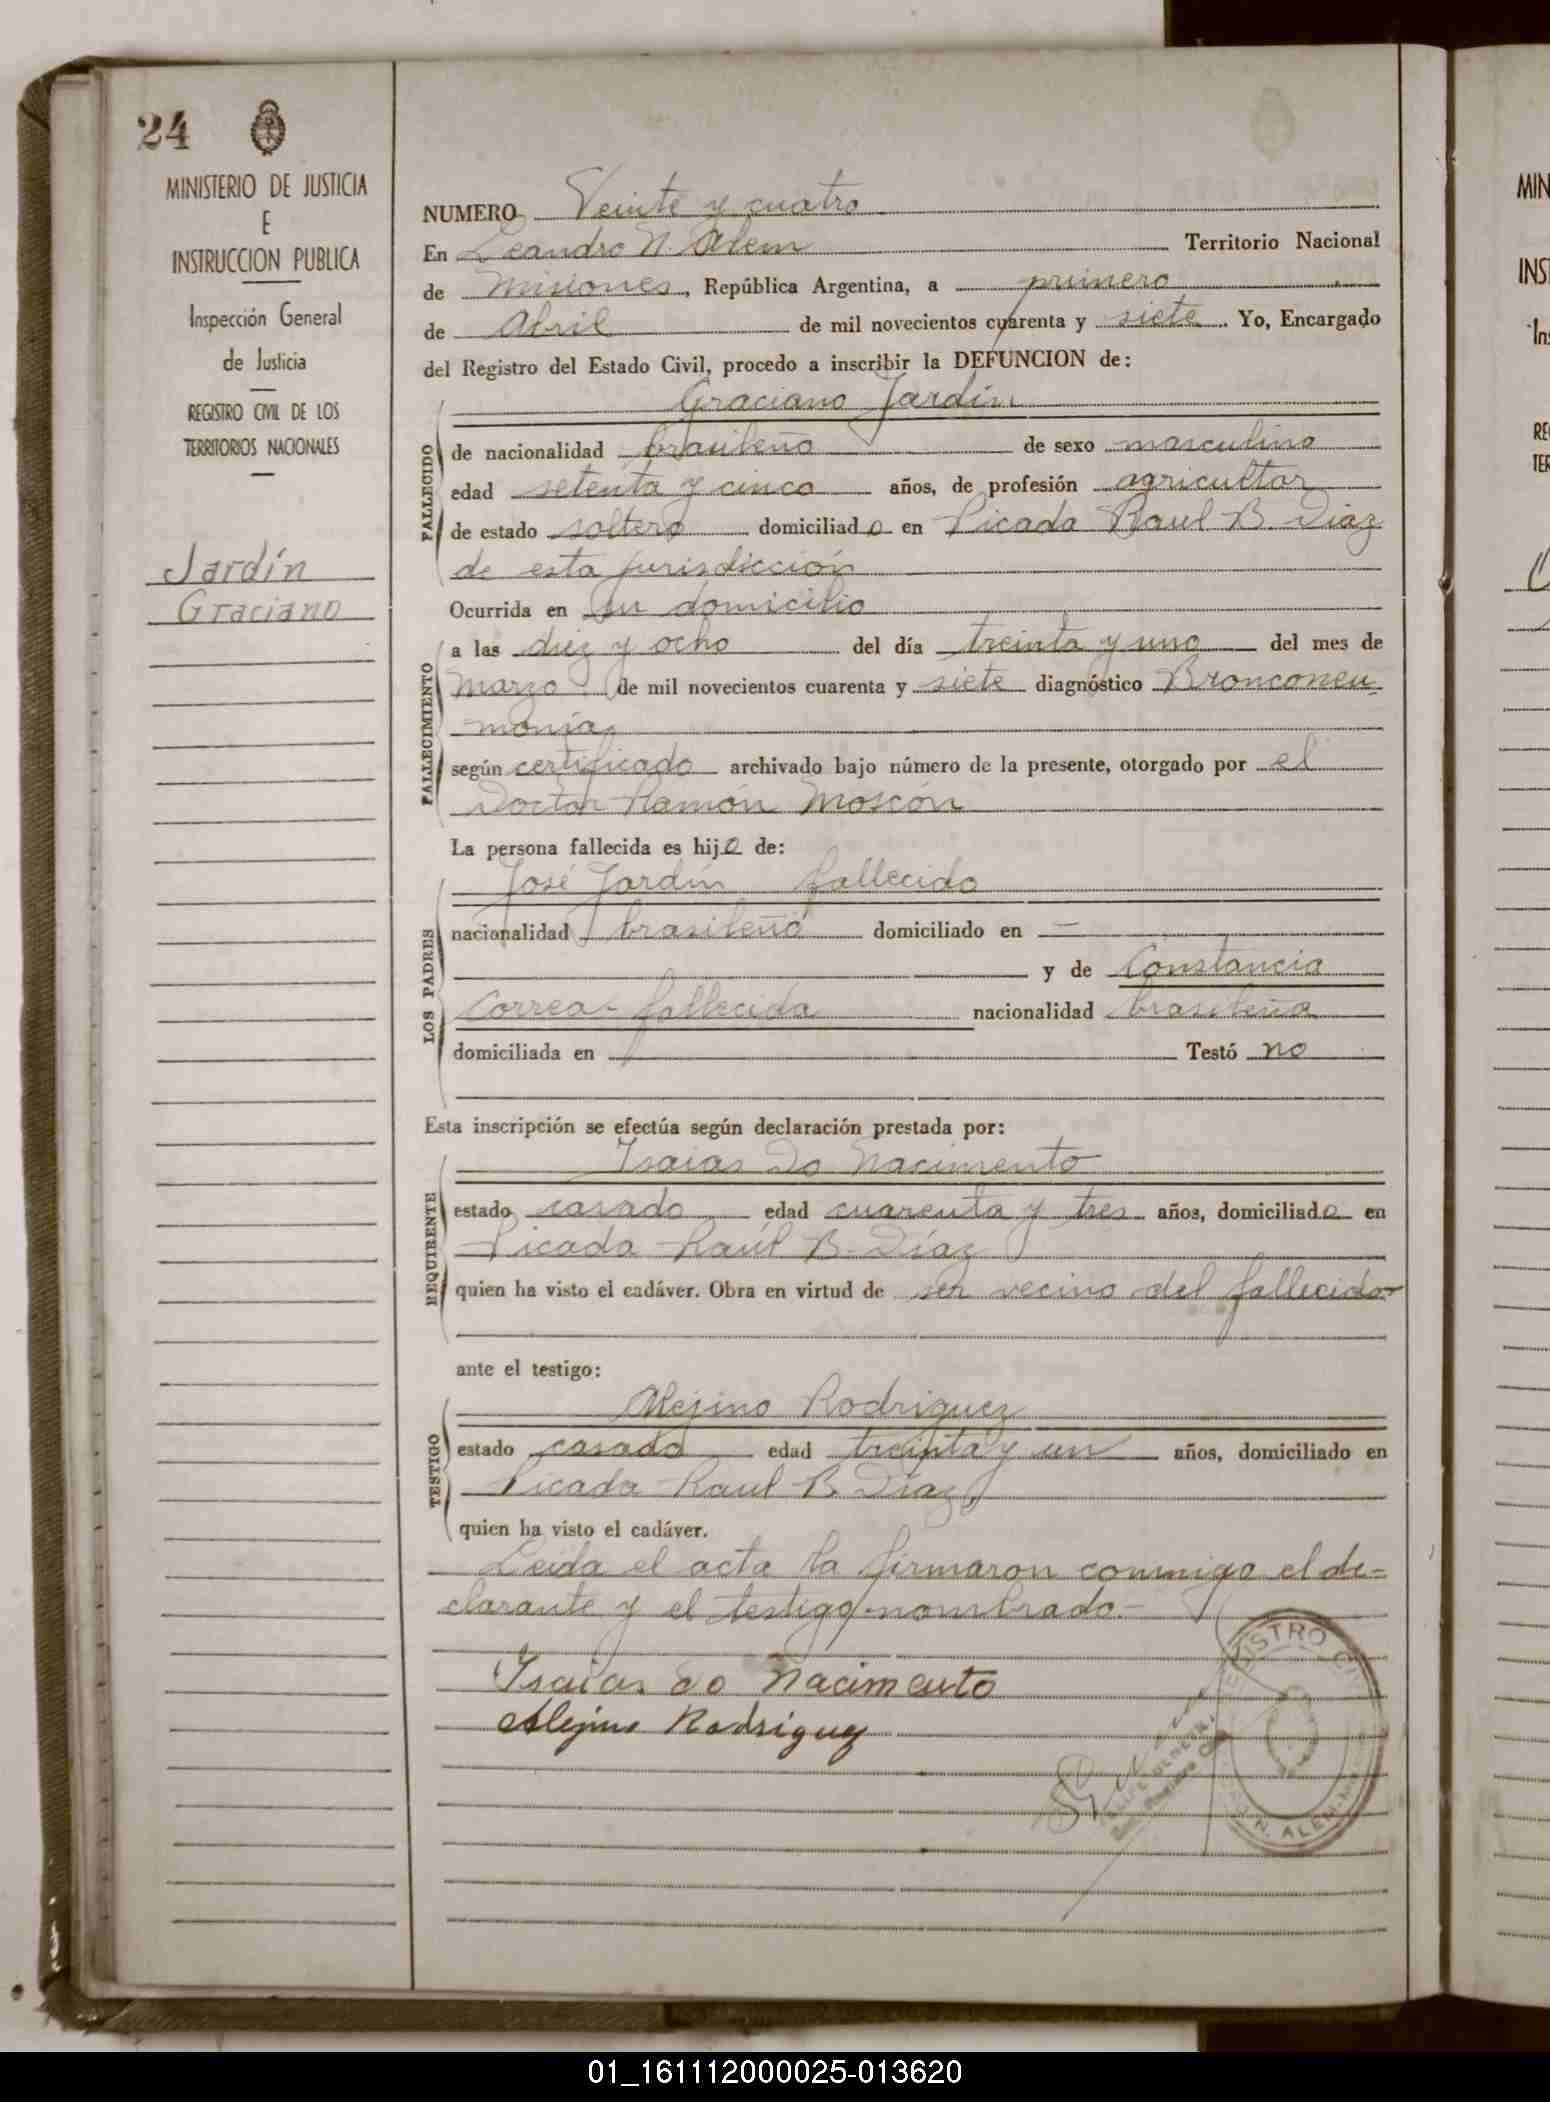 24
MINISTERIO DE JUSTICIA
E
INSTRUCCION PUBLICA
Inspección General
de Justicia
REGISTRO CIVIL DE LOS
TERRITORIOS NACIONALES
Jardín
Graciano
NUMERO Veinte y cuatro
En Leandro N. Alem Territorio Nacional
de Misiones, República Argentina, a primero
de Abril de mil novecientos cuarenta y siete. Yo, Encargado
del Registro del Estado Civil, procedo a inscribir la DEFUNCION de:
FALLECIDO
Graciano Jardín
de nacionalidad brasileño de sexo masculino
edad setenta y cinco años, de profesión agricultor
de estado soltero domiciliado en Picada Raul B. Diaz
de esta jurisdicción
FALLECIMIENTO
Ocurrida en su domicilio
a las diez y ocho del día treinta y uno del mes de
Marzo de mil novecientos cuarenta y siete diagnóstico Bronconeu-
monía
según certificado archivado bajo número de la presente, otorgado por el
Doctor Ramón Moscón
La persona fallecida es hijo de:
LOS PADRES
José Jardín fallecido
nacionalidad brasileño domiciliado en —
y de Constancia
Correa - fallecida nacionalidad brasileña
domiciliada en Testó no
Esta inscripción se efectúa según declaración prestada por:
REQUIRENTE
Isaias Do Nacimento
estado casado edad cuarenta y tres años, domiciliado en
Picada Raúl B. Díaz
quien ha visto el cadáver. Obra en virtud de ser vecino del fallecido-
ante el testigo:
TESTIGO
Alejino Rodriguez
estado casado edad treinta y un años, domiciliado en
Picada Raul B. Diaz
quien ha visto el cadáver.
Leida el acta la firmaron conmigo el de=
clarante y el testigo nombrado.-
Isaias do Nacimento
Alejino Rodriguez
REGISTRO CIVIL
N. ALEM
MIN
INS
In
RE
TER
01_161112000025-013620